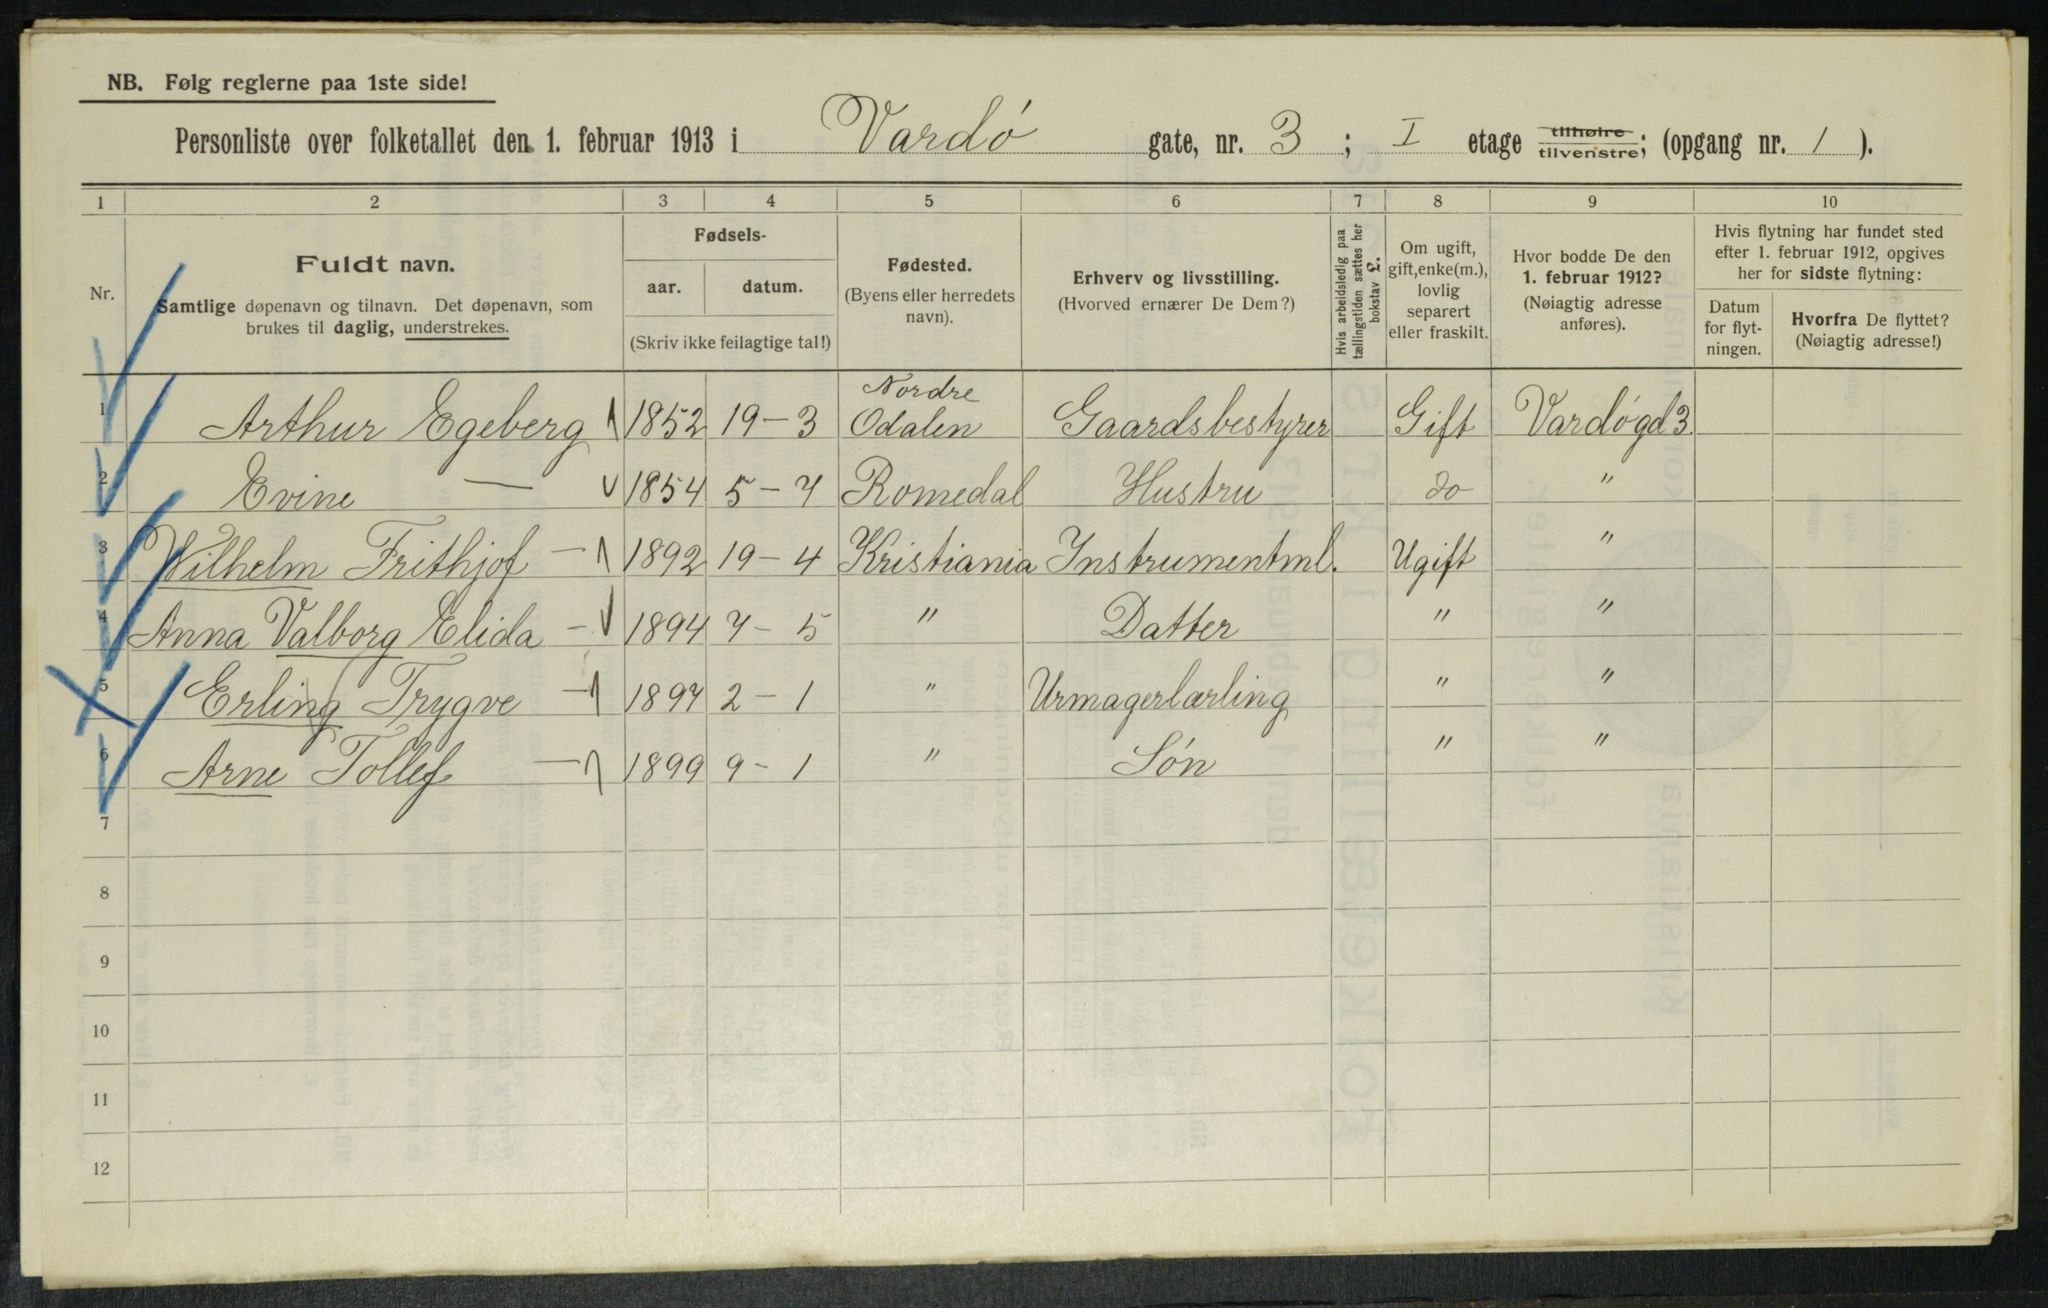 NB. Følg reglerne paa 1ste side!
Personliste over folketallet den 1. februar 1913 i Vardø gate, nr. 3 ; I etage tilhøire tilvenstre; (opgang nr. 1 ).
1 2 3 4 5 6 7 8 9 10
Nr.
Fuldt navn.
Samtlige døpenavn og tilnavn. Det døpenavn, som
brukes til daglig, understrekes.
Fødsels-
aar. datum.
(Skriv ikke feilagtige tal!)
Fødested.
(Byens eller herredets
navn).
Erhverv og livsstilling.
(Hvorved ernærer De Dem?)
Hvis arbeidsledig paa
tællingstiden sættes her
bokstav L.
Om ugift,
gift, enke(m.),
lovlig
separert
eller fraskilt.
Hvor bodde De den
1. februar 1912?
(Nøiagtig adresse
anføres).
Hvis flytning har fundet sted
efter 1. februar 1912, opgives
her for sidste flytning:
Datum
for flyt-
ningen.
Hvorfra De flyttet?
(Nøiagtig adresse!)
1 Arthur Egeberg 1852 19-3 Nordre Odalen Gaardsbestyrer Gift Vardøgd 3
2 Evine — 1854 5-7 Romedal Hustru do "
3 Wilhelm Frithjof — 1892 19-4 Kristiania Instrumentml. Ugift "
4 Anna Valborg Elida — 1894 7-5 " Datter " "
5 Erling Trygve — 1897 2-1 " Urmagerlærling " "
6 Arne Tollef — 1899 9-1 " Søn " "
7
8
9
10
11
12